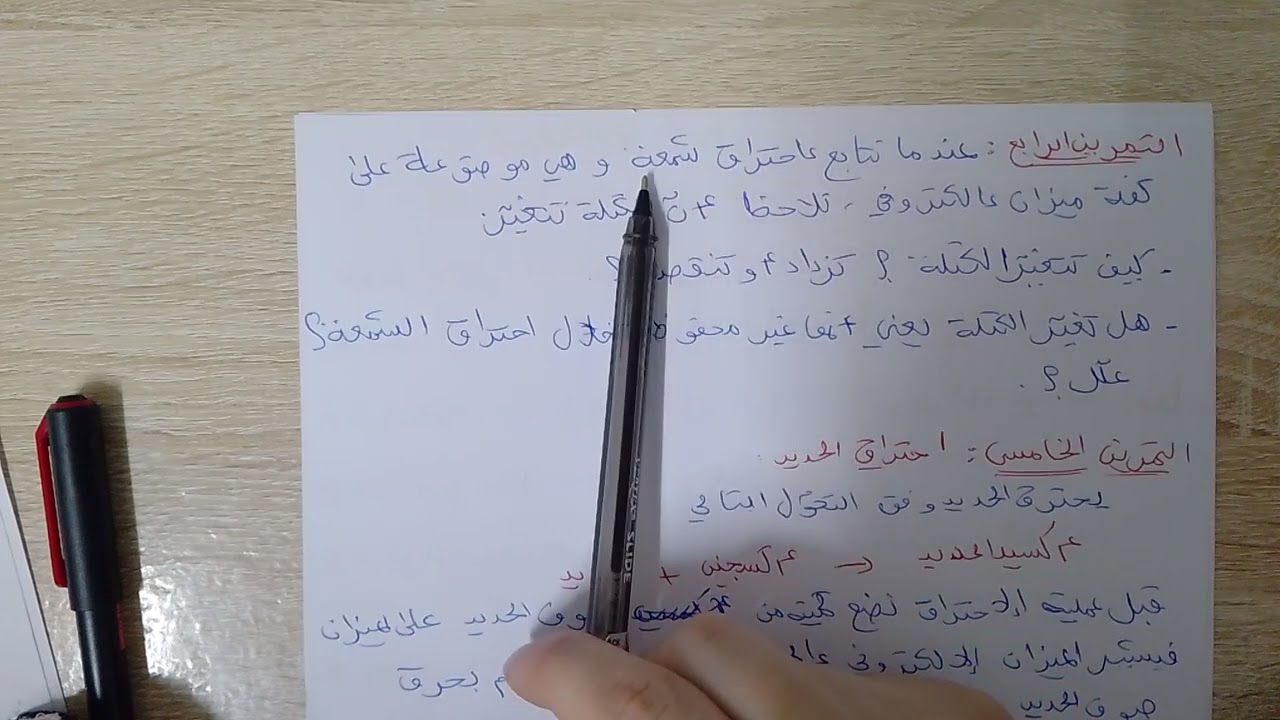 التمرين الرابع : عندما تتابع احتراق شمعة و هي موضوعة على
كفة ميزان الكتروني ، تلاحظ أنّ كتلة تتغيّر
- كيف تتغيّر الكتلة ؟ تزداد أو تنقص ؟
- هل تغيّر الكتلة يعني أنها غير محفوظة خلال احتراق الشمعة ؟
علّل ؟ .
التمرين الخامس : احتراق الحديد .
يحترق الحديد وفق التحوّل التالي
يد + أكسجين → أكسيد الحديد
قبل عملية الاحتراق نضع كمية من صوف الحديد على الميزان
فيشير الميزان الالكتروني نحرق
صوف الحديد
SLIDE